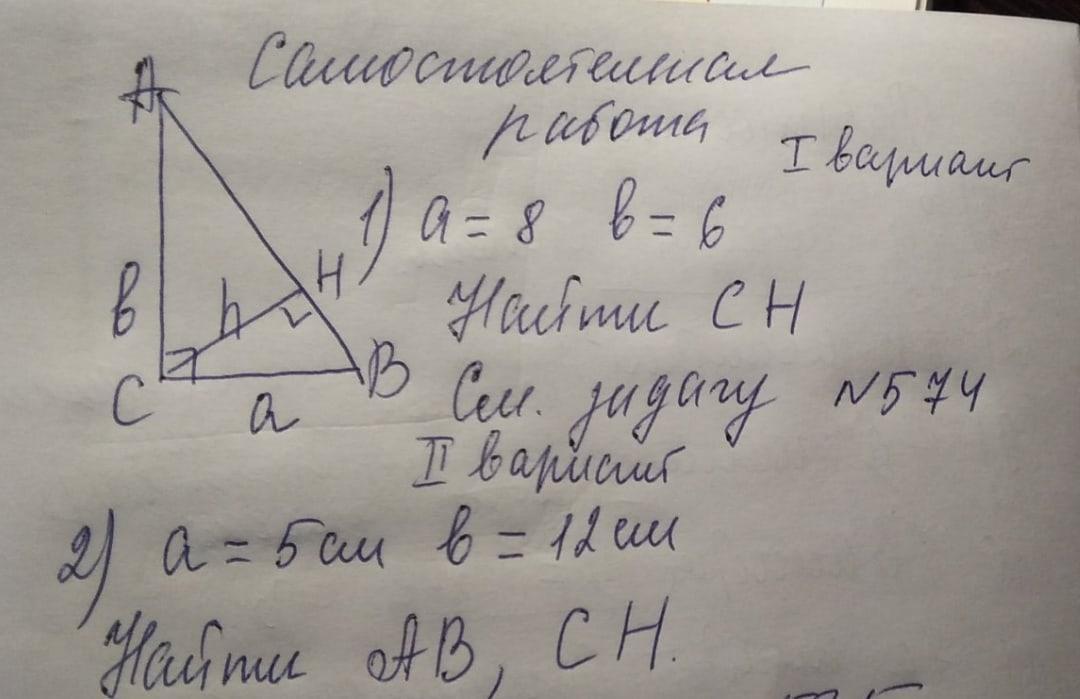 Самостоятельная
работа
I вариант
A
1) a = 8 в = 6
H
в
h
Найти CH
C
a
B
См. задачу N574
II вариант
2) a = 5 см в = 12 см
Найти AB, CH.